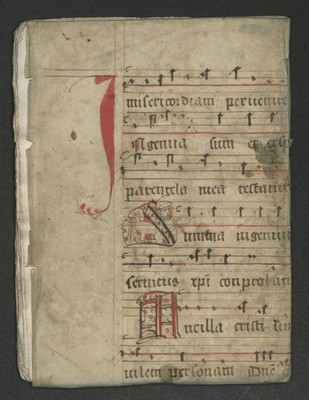 misericordiam peruenire
INgenua sum et ex sp
parentela mea testatur
Summa ingenuit
seruitus xpi conprobat
Ancilla cristi sum
uilem personam